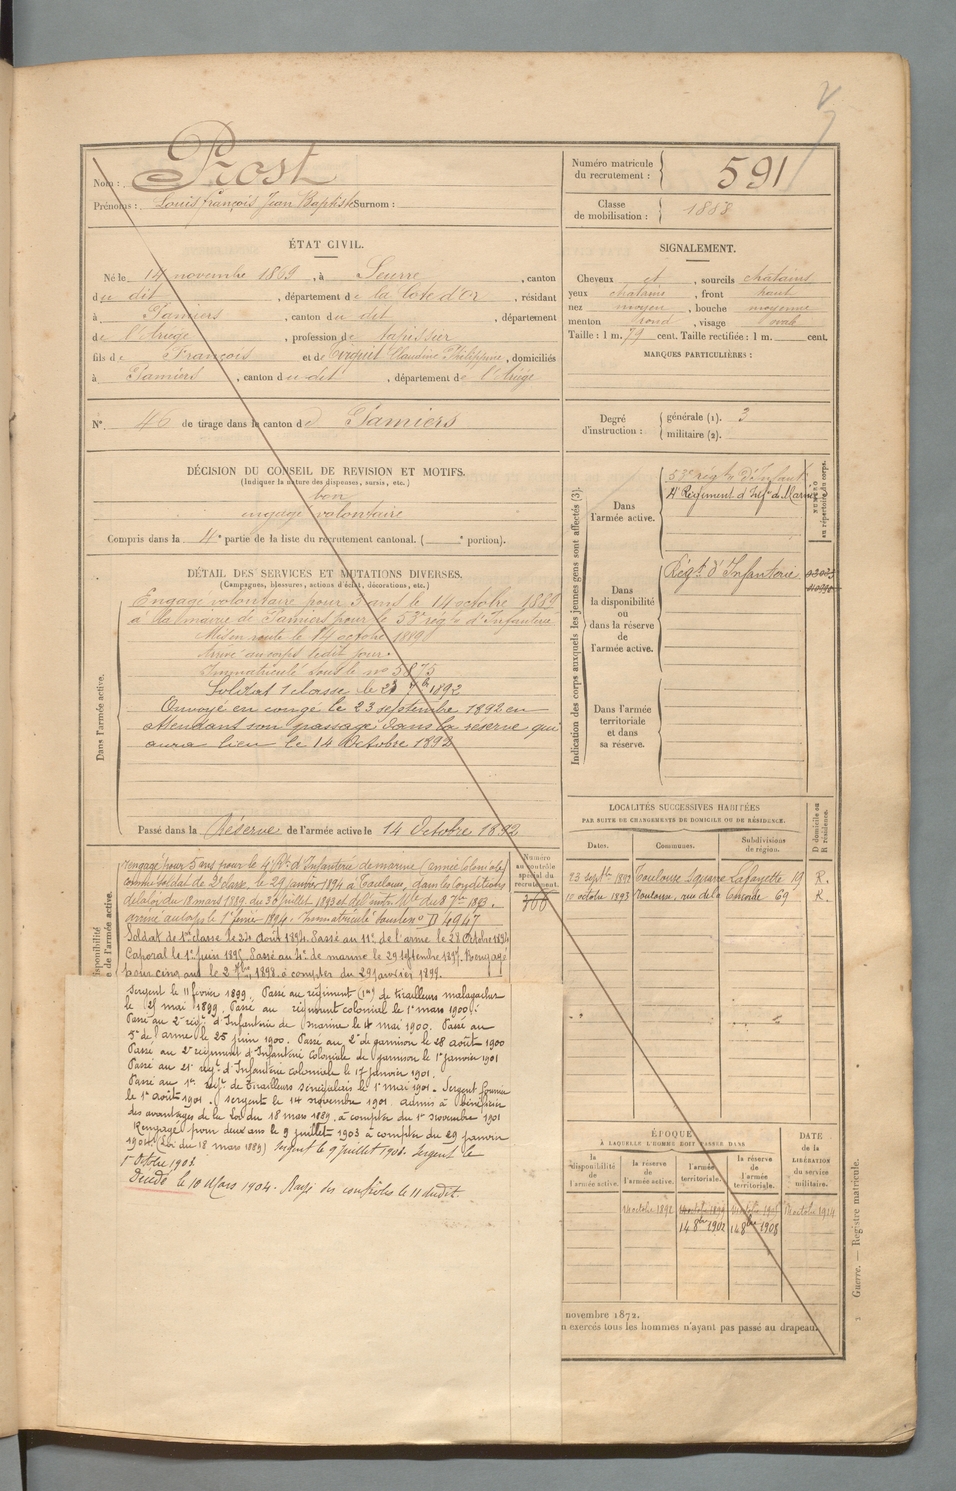 Nom : Prost
Prénoms : Louis François Jean Baptiste Surnom :
Numéro matricule du recrutement : 591
Classe de mobilisation : 1888
ÉTAT CIVIL.
Né le 14 novembre 1869, à Seurre, canton
du dit, département de la Côte d'Or, résidant
à Pamiers, canton du dit, département
de l'Ariège, profession de tapissier
fils de François et de Claudine Philippine, domiciliés
à Pamiers, canton du dit, département de l'Ariège
N° 46 de tirage dans le canton de Pamiers
SIGNALEMENT.
Cheveux et, sourcils chatains
yeux chatains, front haut
nez moyen, bouche moyenne
menton rond, visage ovale
Taille : 1 m. 71 cent. Taille rectifiée : 1 m. cent.
MARQUES PARTICULIÈRES :
Degré d'instruction : générale (1). 3
militaire (2).
DÉCISION DU CONSEIL DE REVISION ET MOTIFS.
(Indiquer la nature des dispenses, sursis, etc.)
bon
engagé volontaire
Compris dans la 4e partie de la liste du recrutement cantonal. ( e portion).
DÉTAIL DES SERVICES ET MUTATIONS DIVERSES.
(Campagnes, blessures, actions d'éclat, décorations, etc.)
Dans l'armée active.
Engagé volontaire pour 3 ans le 14 octobre 1889
à la mairie de Pamiers pour le 53e régt d'Infanterie
Mis en route le 14 octobre 1889
Arrivé au corps ledit jour.
Immatriculé sous le no 5875
Soldat 1 classe le 23 7bre 1892
Envoyé en congé le 23 septembre 1892 en
attendant son passage dans la réserve qui
aura lieu le 14 Octobre 1892
Passé dans la Réserve de l'armée active le 14 Octobre 1892
Indication des corps auxquels les jeunes gens sont affectés (3).
NUMÉRO au répertoire du corps.
Dans l'armée active.
53e régt d'Infant
4e Régiment d'Infie de Marine
Dans la disponibilité ou dans la réserve de l'armée active.
Régt d'Infanterie
Dans l'armée territoriale et dans sa réserve.
LOCALITÉS SUCCESSIVES HABITÉES
PAR SUITE DE CHANGEMENTS DE DOMICILE OU DE RÉSIDENCE.
D domicile ou R résidence.
Dates. Communes. Subdivisions de région.
23 septbre 1892 Toulouse Square Lafayette 19 R.
11 octobre 1893 Toulouse, rue de la Concorde 69 R.
Numéro au contrôle spécial du recrutement.
rengagé pour 5 ans pour le 4e Rt d'Infanterie de marine (armée coloniale)
comme soldat de 2e classe, le 29 janvier 1894 à Toulouse, dans les conditions
de la loi du 18 mars 1889, du 30 juillet 1893 et de l'instr. Mlle du 8 7bre 1893.
arrivé au corps le 1er février 1894. Immatriculé sous le no 4947
Soldat de 1ere classe le 24 août 1894. Passé au 11e de l'arme le 28 Octobre 1894
Caporal le 1er juin 1895. Passé au 4e de marine le 29 septembre 1897. Rengagé
pour cinq ans le 2 1898 à compter du 29 janvier 1899.
Sergent le 11 février 1899. Passé au régiment (1er) de tirailleurs malgaches
le 25 mai 1899. Passé au régiment colonial le 1er mars 1900.
Passé au 2e régt d'Infanterie de marine le 4 mai 1900. Passé au
5e de l'arme le 25 juin 1900. Passé au 2e de garnison le 28 août 1900
Passé au 2e régiment d'Infanterie Coloniale de garnison le 1er janvier 1901
Passé au 21e régt d'Infanterie coloniale le 17 janvier 1901.
Passé au 1er régt de Tirailleurs sénégalais le 1er mai 1901. Sergent fourrier
le 1er août 1901. Sergent le 14 novembre 1901. admis à bénéficier
des avantages de la Loi du 18 mars 1889, à compter du 1er novembre 1901
Rengagé pour deux ans le 9 juillet 1903 à compter du 29 janvier
1904 (Loi du 18 mars 1889) Sergent le 9 juillet 1903. Sergent le
1er Octobre 1903.
Décédé le 10 Mars 1904. Rayé des contrôles le 11 dudit.
ÉPOQUE
À LAQUELLE L'HOMME DOIT PASSER DANS
DATE de la LIBÉRATION du service militaire.
la disponibilité de l'armée active. la réserve de l'armée active. l'armée territoriale. la réserve de l'armée territoriale.
14 octobre 1892 14 octobre 1899
14 8bre 1902 14 8bre 1908
novembre 1872.
n exercés tous les hommes n'ayant pas passé au drapeau.
Guerre. — Registre matricule.